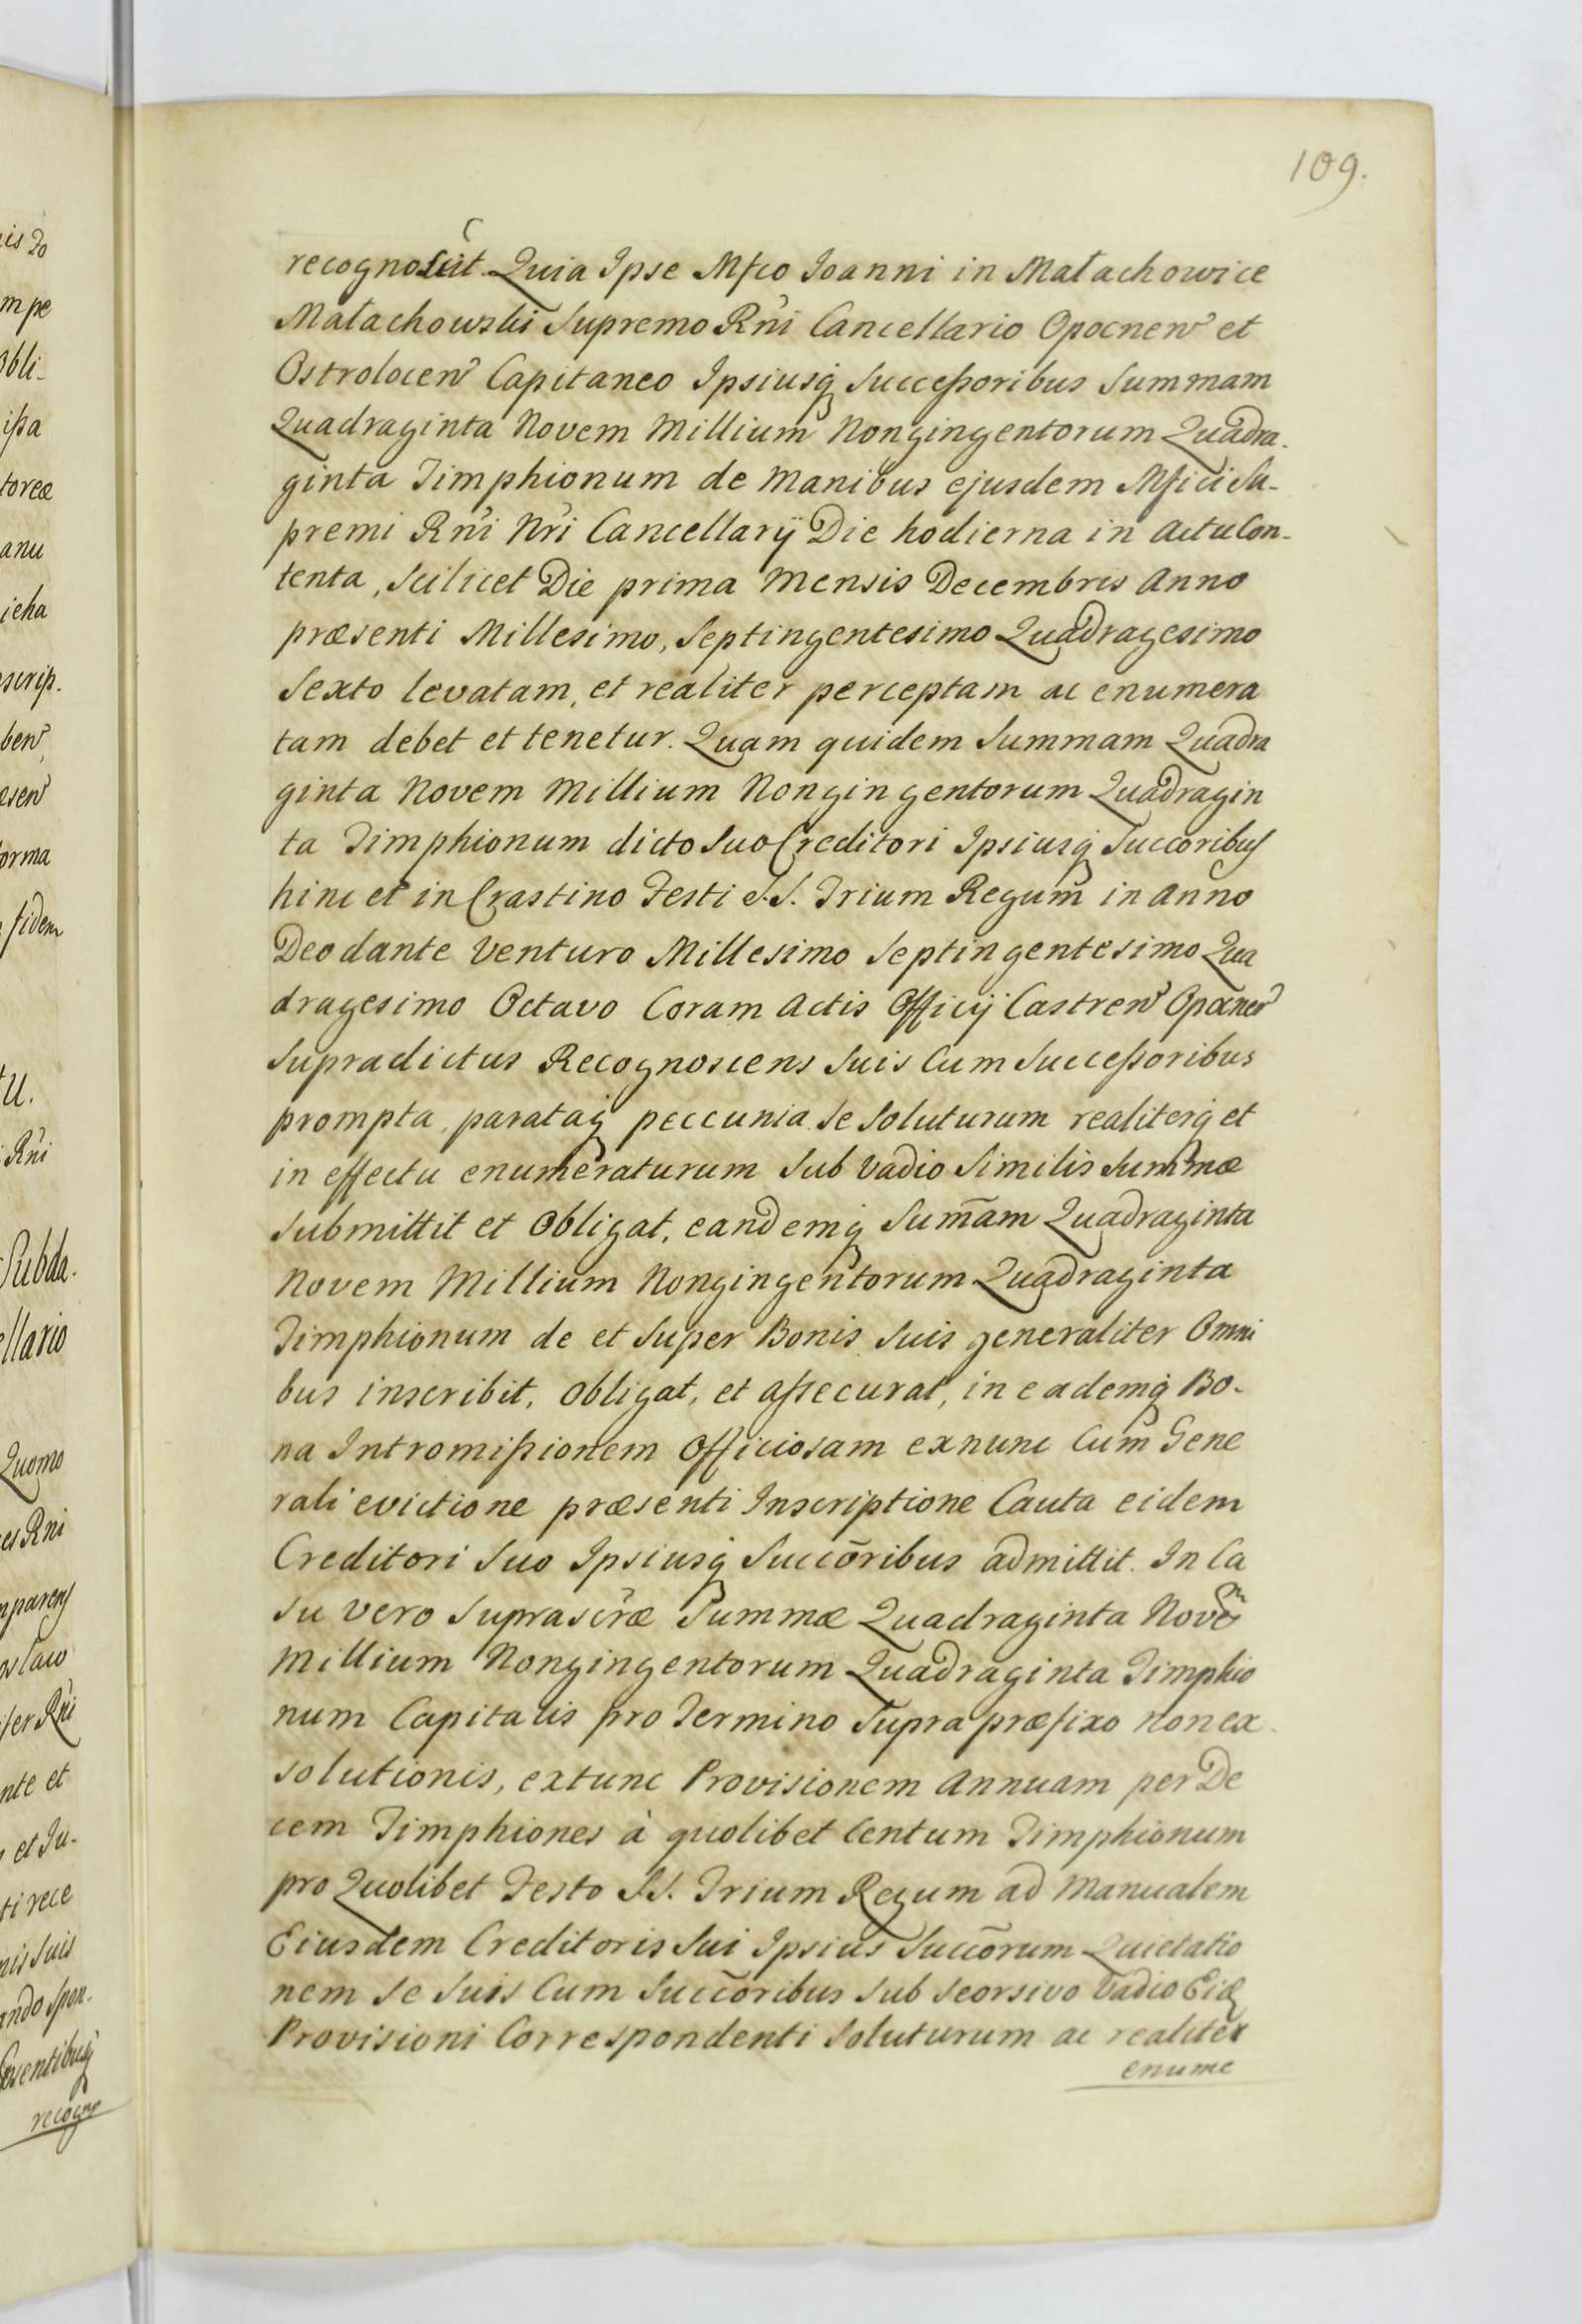 109.
recognoscit. Quia Ipse Mfco Joanni in Małachowice
Małachowski Supremo Rñi Cancellario Opocnen̄ et
Ostrolocen̄ Capitaneo Ipsiusq; Successoribus Summam
Quadraginta Novem Millium Nongingentorum Quadra-
ginta Timphionum de Manibus ejusdem Mfici Su-
premi Rñi Nri Cancellarij Die hodierna in Actu Con-
tenta, Scilicet Die prima Mensis Decembris Anno
præsenti Millesimo, Septingentesimo Quadragesimo
Sexto levatam, et realiter perceptam ac enumera
tam debet et tenetur. Quam quidem Summam Quadra
ginta Novem Millium Nongingentorum Quadragin
ta Timphionum dicto Suo Creditori Ipsiusq; Succoribus
hinc et in Crastino Festi S.S. Trium Regum in Anno
Deo dante Venturo Millesimo Septingentesimo Qua
dragesimo Octavo Coram Actis Officij Castren̄ Opocnen̄
Supradictus Recognoscens Suis Cum Successoribus
prompta, parataq; peccunia Se Soluturum realiterq; et
in effectu enumeraturum Sub Vadio Similis Summæ
Submittit et Obligat, eandemq; Sum̄am Quadraginta
Novem Millium Nongingentorum Quadraginta
Timphionum de et Super Bonis Suis generaliter Omni
bus inscribit, Obligat, et assecurat, in eademq; Bo-
na Intromissionem Officiosam exnunc Cum Gene
rali evictione præsenti Inscriptione Cauta eidem
Creditori Suo Ipsiusq; Succōribus admittit. In Ca
su vero Suprascræ Summæ Quadraginta Novem
Millium Nongingentorum Quadraginta Timphio
num Capitalis pro Termino Supra præfixo non ex-
solutionis, extunc Provisionem Annuam per De
cem Timphiones à quolibet Centum Timphionum
pro Quolibet Festo S.S. Trium Regum ad Manualem
Eiusdem Creditoris Sui Ipsius Succōrum Quietatio
nem Se Suis Cum Succōribus Sub Seorsivo Vadio Eid
Provisioni Correspondenti Soluturum ac realiter
enume